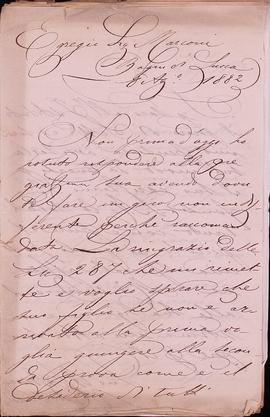 Egregio Sig. Marconi
Bagni di Lucca
6 Ag.o 1882
Non prima d'oggi ho
potuto rispondere alla pre
giatma sua avendo dovu
to fare un giro non indif
ferente perchè raccoman
data. La ringrazio delle
Lire 287 che mi rimet
te e voglio sperare che
suo figlio se non è ar
rivato alla prima vo
glia giungere alla secon
da prova come è il
desiderio di tutti